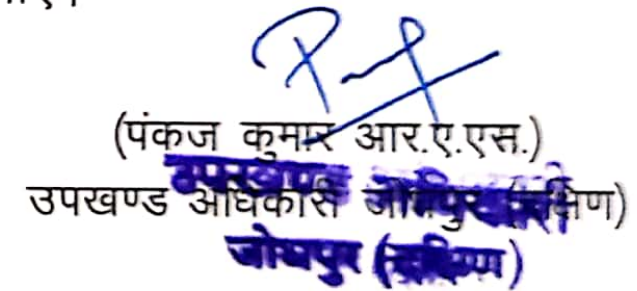 (पंकज कुमार आर.ए.एस.)
उपखण्ड अधिकारी जोधपुर (दक्षिण)
जोधपुर (दक्षिण)